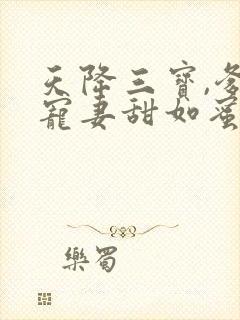 天降三寶,爹
寵妻甜如蜜
樂蜀